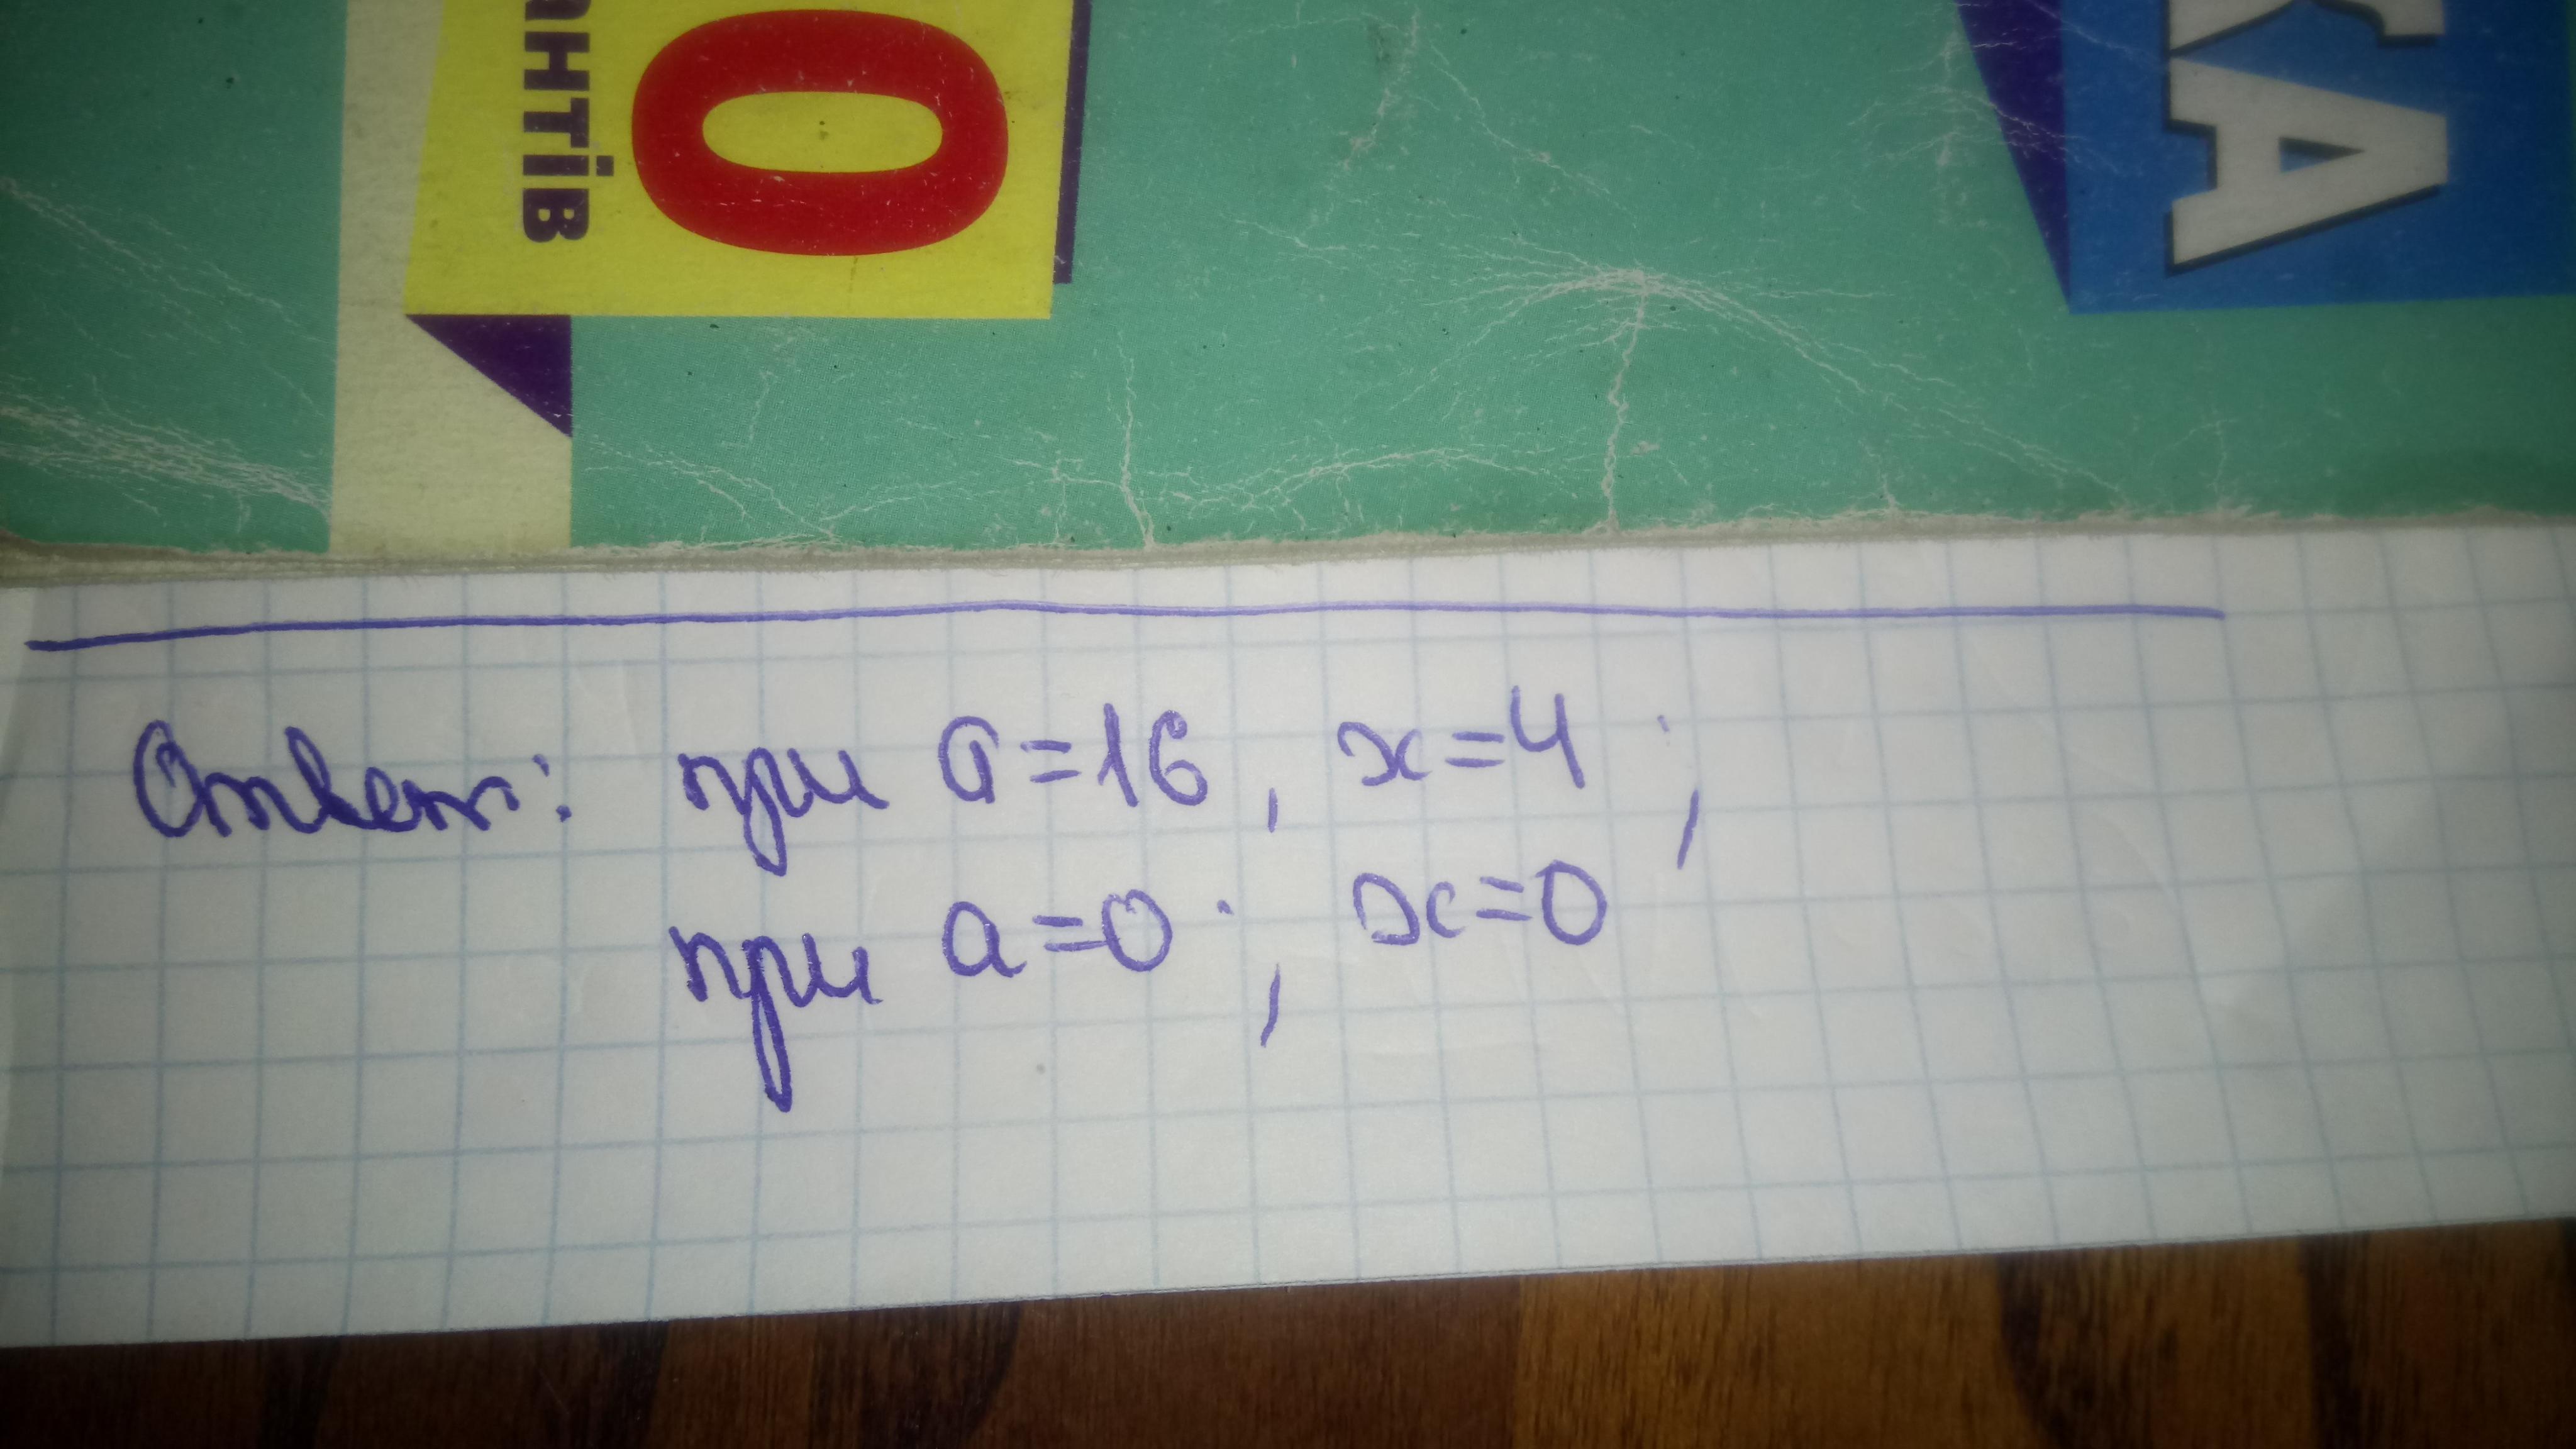 АНТІВ
0
КА
Ответ: при a=16, x=4;
при a=0; x=0